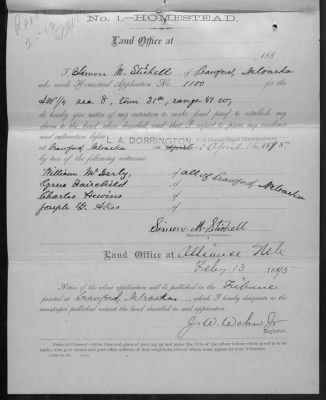 No. 1.—HOMESTEAD.
Land Office at
189
I, Simon M. Stickell, of Crawford, Nebraska
who made Homestead Application No. 1100
for the
SW 1/4 sec 8, town 31 n, range 51 w,
do hereby give notice of my intention to make final proof to establish my
claim to the land above described, and that I expect to prove my residence
and cultivation before L. A. DORRINGTON
at Crawford, Nebraska on April 1895,
by two of the following witnesses:
William
Cyrus Fairchild of all of Crawford, Nebraska
Charles Hewins of
Joseph G. Akes of
Simon M. Stickell
Land Office at Alliance Neb
Feby 13 1895
Notice of the above application will be published in the Tribune
printed at Crawford, Nebraska, which I hereby designate as the
newspaper published nearest the land described in said application.
J. W. Wehn Jr
Register.